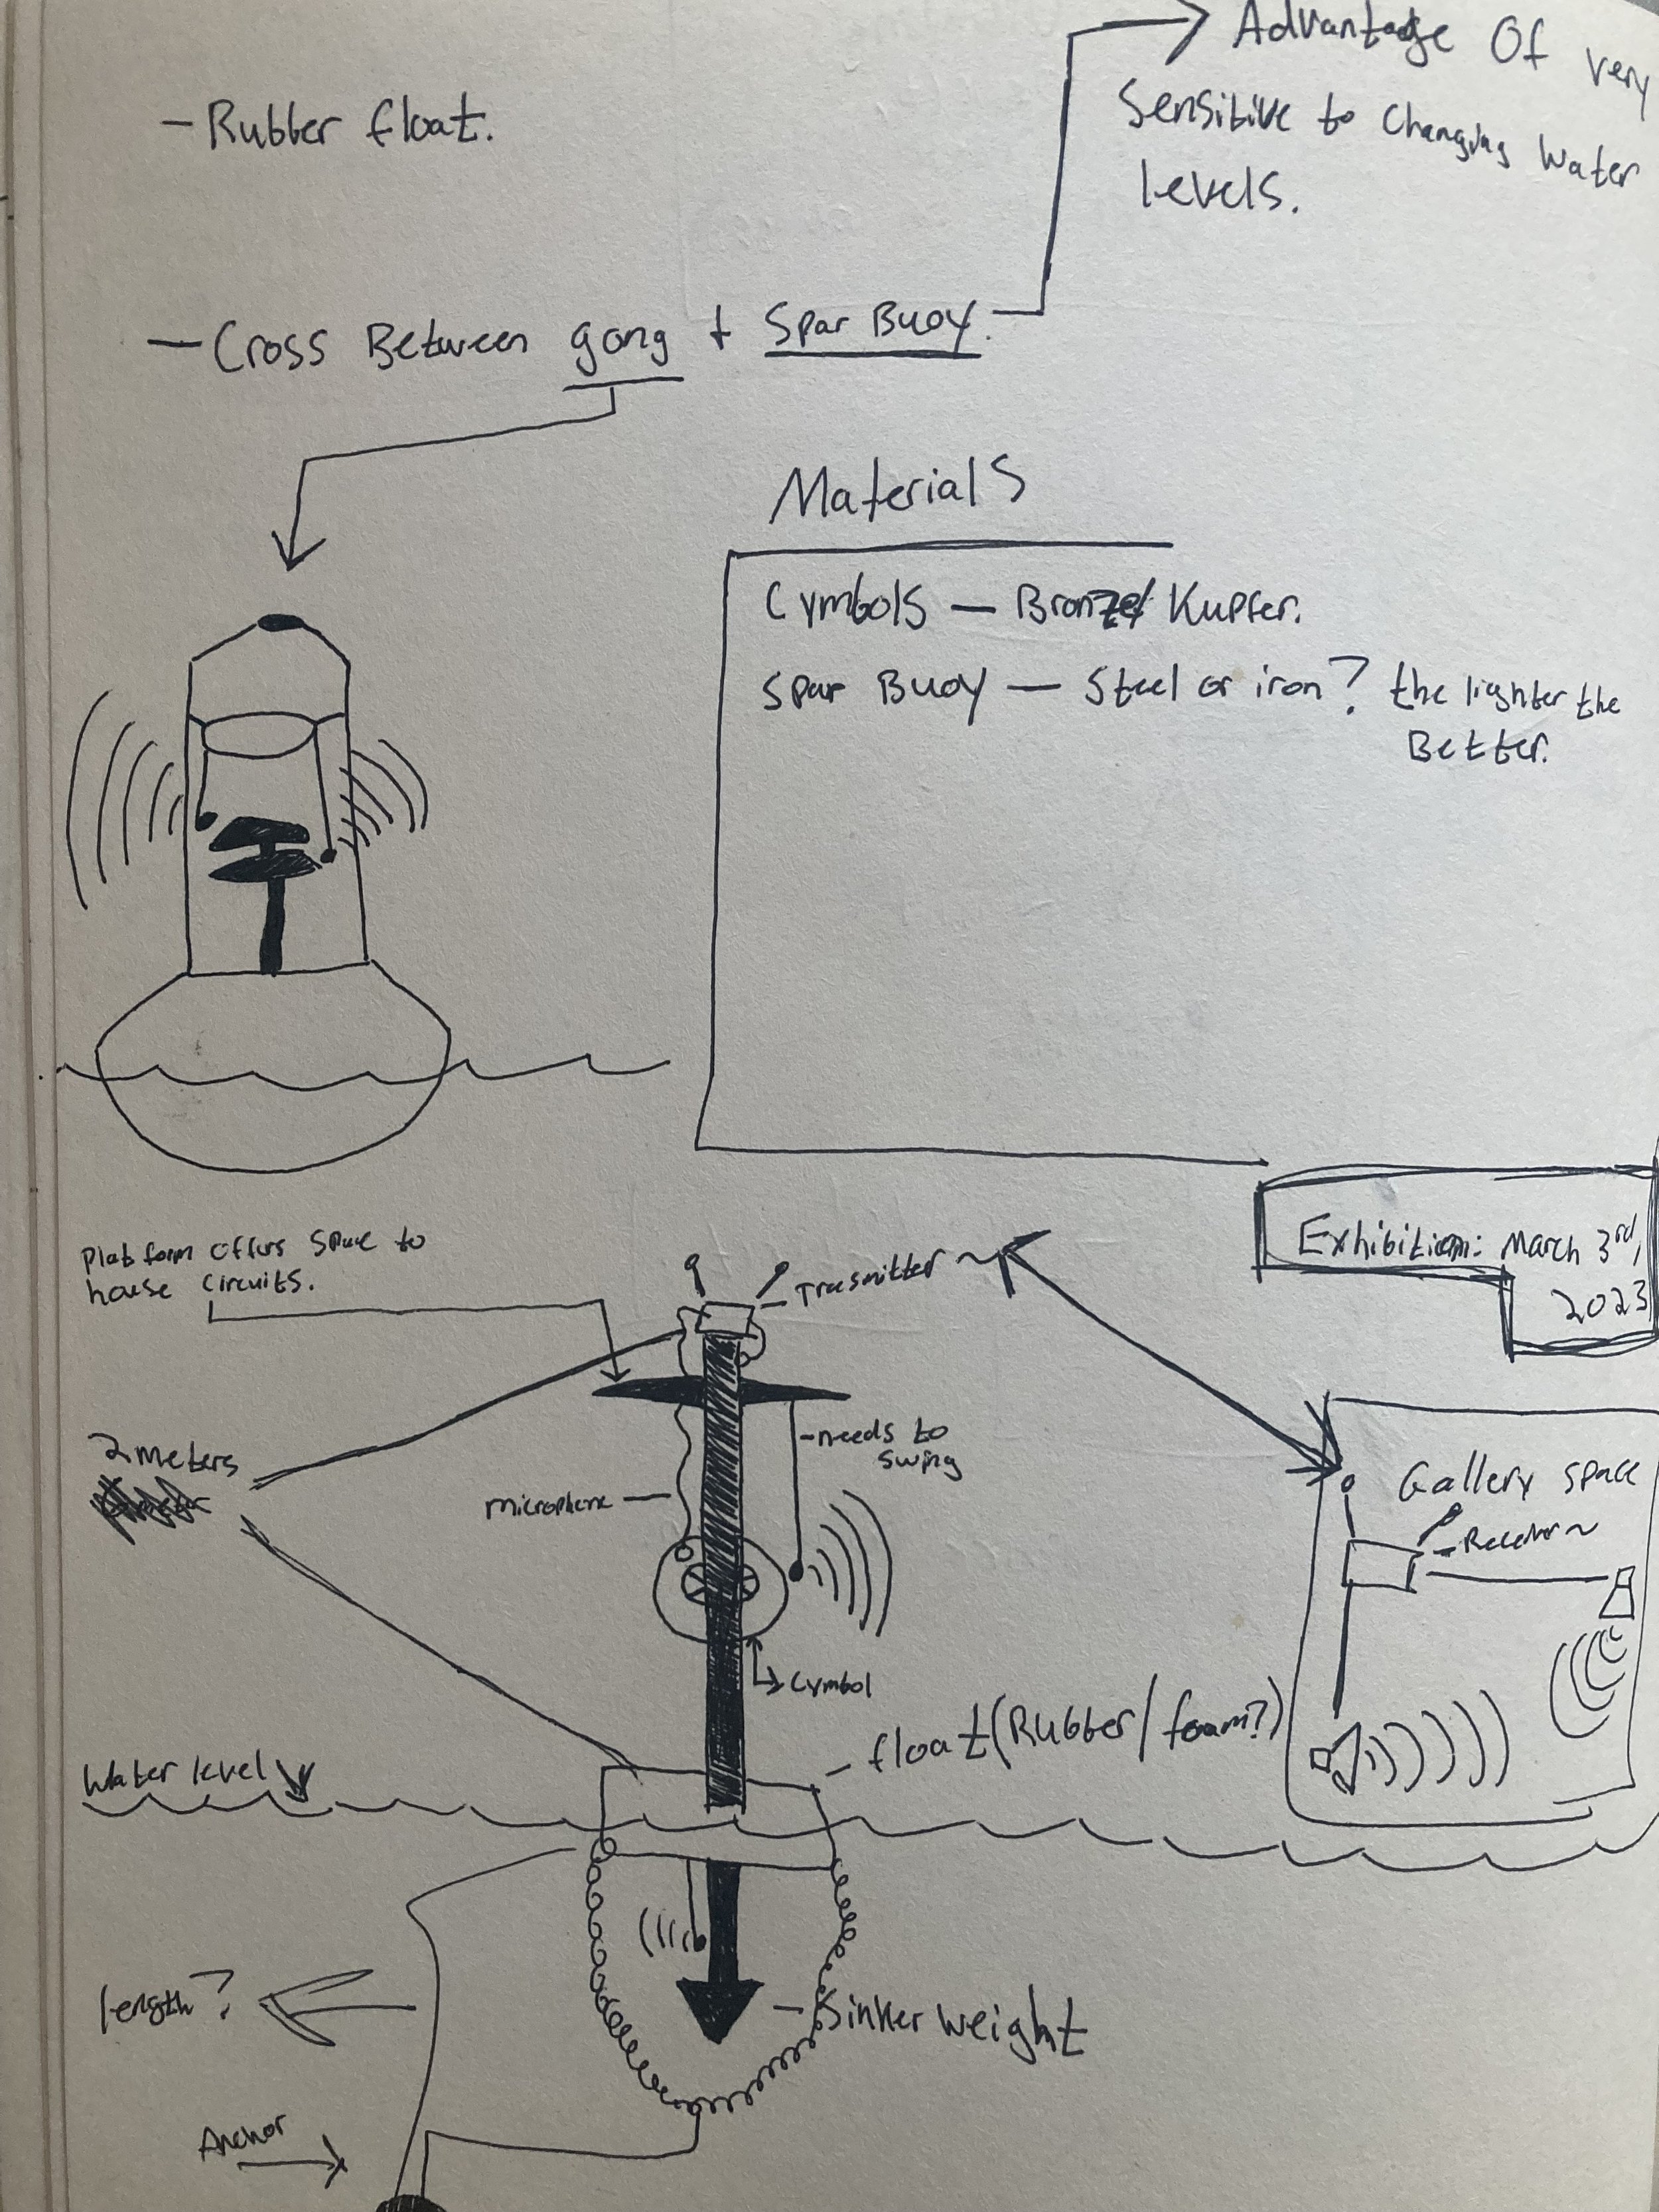 - Rubber float.
Advantage Of very
Sensitive to Changing Water
levels.
- Cross Between gong + Spar Buoy.
Materials
Cymbols - Bronze/ Kupfer.
Spar Buoy - Steel or iron? the lighter the
Better.
Exhibition: March 3rd,
2023
Platform offers Space to
house Circuits.
Transmitter
2 meters
-needs to
swing
microphone
Cymbol
Gallery space
float (Rubber/foam?)
Water level
length?
Sinker weight
Anchor